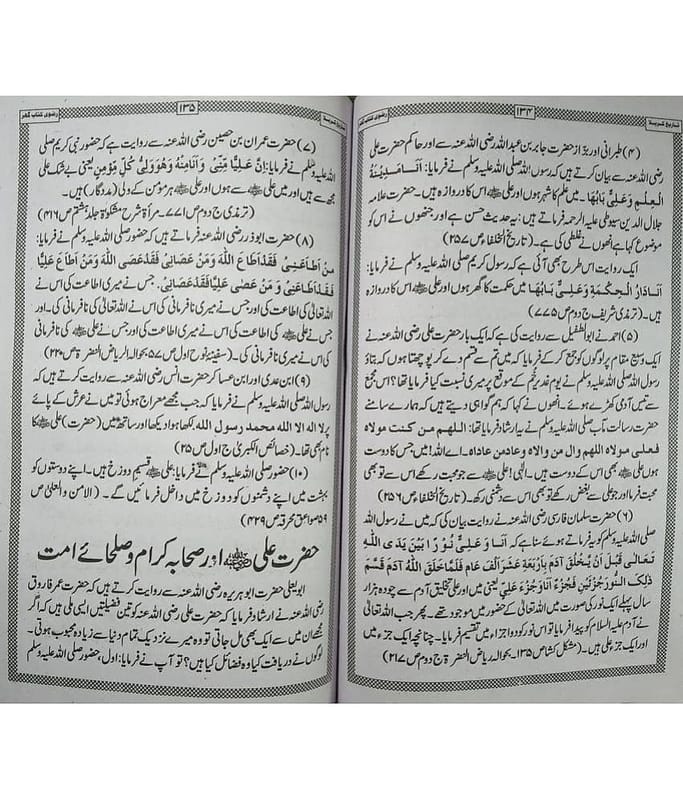 تاریخ کربلا
۱۳۴
رضوی کتاب گھر
(۴) طبرانی اور بزاز حضرت جابر بن عبداللہ رضی اللہ عنہ سے اور حاکم حضرت علی
رضی اللہ عنہ سے بیان کرتے ہیں کہ رسول اللہ صلی اللہ علیہ وسلم نے فرمایا: اَنَا مَدِیْنَةُ
الْعِلْمِ وَعَلِیٌّ بَابُهَا ۔ میں علم کا شہر ہوں اور علی اس کا دروازہ ہیں۔ حضرت علامہ
جلال الدین سیوطی علیہ الرحمہ فرماتے ہیں: یہ حدیث حسن ہے اور جنھوں نے اس کو
موضوع کہا ہے انھوں نے غلطی کی ہے۔ (تاریخ الخلفاء ص ۲۵۷)
ایک روایت اس طرح بھی آئی ہے کہ رسول کریم صلی اللہ علیہ وسلم نے فرمایا:
اَنَا دَارُ الْحِکْمَةِ وَعَلِیٌّ بَابُهَا میں حکمت کا گھر ہوں اور علی اس کا دروازہ
ہیں۔ (ترمذی شریف ج دوم ص ۷۷۵)
(۵) احمد نے ابوالطفیل سے روایت کی ہے کہ ایک بار حضرت علی رضی اللہ عنہ نے
ایک وسیع مقام پر لوگوں کو جمع کر کے فرمایا کہ میں تم سے قسم دے کر پوچھتا ہوں کہ بتاؤ
رسول اللہ صلی اللہ علیہ وسلم نے یوم غدیر خُم کے موقع پر میری نسبت کیا فرمایا تھا؟ اس مجمع
سے تیس آدمی کھڑے ہوئے۔ انھوں نے کہا کہ ہم گواہی دیتے ہیں کہ ہمارے سامنے
حضرت رسالت مآب صلی اللہ علیہ وسلم نے یہ ارشاد فرمایا تھا: اللهم من كنت مولاه
فعلی مولاہ اللهم وال من والاہ وعاد من عاداہ۔ اے اللہ! میں جس کا دوست
ہوں علی بھی اس کے دوست ہیں۔ الٰہی! علی سے جو محبت رکھے اس سے تو بھی
محبت فرما اور جو علی سے بغض رکھے تو بھی اس سے دشمنی رکھ۔ (تاریخ الخلفاء ص ۲۵۶)
(۶) حضرت سلمان فارسی رضی اللہ عنہ نے روایت بیان کی کہ میں نے رسول اللہ
صلی اللہ علیہ وسلم کو یہ فرماتے ہوئے سنا ہے کہ اَنَا وَ عَلِیٌّ نُوْرًا بَیْنَ یَدَیِ اللّٰهِ
تَعَالٰی قَبْلَ اَنْ یُخْلَقَ آدَمُ بِاَرْبَعَةِ عَشَرَ اَلْفَ عَامٍ فَلَمَّا خَلَقَ اللّٰهُ آدَمَ قَسَّمَ
ذٰلِکَ النُّوْرَ جُزْئَیْنِ فَجُزْءٌ اَنَا وَجُزْءٌ عَلِیٌّ یعنی میں اور علی تخلیق آدم سے چودہ ہزار
سال پہلے ایک نور کی صورت میں اللہ تعالیٰ کے حضور میں موجود تھے۔ پھر جب اللہ تعالیٰ
نے آدم علیہ السلام کو پیدا فرمایا تو اس نور کو دو اجزاء میں تقسیم فرمایا۔ چنانچہ ایک جزء میں
اور ایک جزء علی ہیں۔ (مشکل کشا ص ۱۳۵۔ بحوالہ ریاض النضرۃ ج دوم ص ۲۱۷)
تاریخ کربلا
۱۳۵
رضوی کتاب گھر
(۷) حضرت عمران بن حصین رضی اللہ عنہ سے روایت ہے کہ حضور نبی کریم صلی
اللہ علیہ وسلم نے فرمایا: اِنَّ عَلِیًّا مِّنِّیْ وَاَنَا مِنْهُ وَهُوَ وَلِیُّ کُلِّ مُؤْمِنٍ یعنی بے شک علی
مجھ سے ہیں اور میں علی سے ہوں اور علی ہر مومن کے ولی (مددگار) ہیں۔
(ترمذی ج دوم ص ۷۷۱۔ مرأۃ شرح مشکوٰۃ جلد ہشتم ص ۴۱۶)
(۸) حضرت ابوذر رضی اللہ عنہ فرماتے ہیں کہ حضور صلی اللہ علیہ وسلم نے فرمایا:
مَنْ اَطَاعَنِیْ فَقَدْ اَطَاعَ اللّٰهَ وَمَنْ عَصَانِیْ فَقَدْ عَصَی اللّٰهَ وَمَنْ اَطَاعَ عَلِیًّا
فَقَدْ اَطَاعَنِیْ وَ مَنْ عَصٰی عَلِیًّا فَقَدْ عَصَانِیْ۔ جس نے میری اطاعت کی اس نے
اللہ تعالیٰ کی اطاعت کی اور جس نے میری نافرمانی کی اس نے اللہ تعالیٰ کی نافرمانی کی۔ اور
جس نے علی کی اطاعت کی اس نے میری اطاعت کی اور جس نے علی کی نافرمانی
کی اس نے میری نافرمانی کی۔ (سفینۂ نوح اول ص ۵۷ بحوالہ الریاض النضرۃ ص ۲۲۰)
(۹) ابن عدی اور ابن عساکر حضرت انس رضی اللہ عنہ سے روایت کرتے ہیں کہ
رسول اللہ صلی اللہ علیہ وسلم نے فرمایا کہ جب مجھے معراج ہوئی تو میں نے عرش کے پائے
پر لا اله الا الله محمد رسول الله لکھا ہوا دیکھا اور ساتھ ہی میں (حضرت) علی کا
نام بھی تھا۔ (خصائص الکبریٰ ج اول ص ۲۵)
(۱۰) حضور صلی اللہ علیہ وسلم نے فرمایا: علی قسیم دوزخ ہیں۔ اپنے دوستوں کو
بہشت میں اپنے دشمنوں کو دوزخ میں داخل فرمائیں گے۔ (الامن و العلیٰ ص
۵۹ صواعق محرقہ ص ۴۲۹)
حضرت علی اور صحابہ کرام و صلحائے امت
ابو یعلی حضرت ابو ہریرہ رضی اللہ عنہ سے روایت کرتے ہیں کہ حضرت عمر فاروق
رضی اللہ عنہ نے ارشاد فرمایا کہ حضرت علی رضی اللہ عنہ کو تین فضیلتیں ایسی ملی ہیں کہ اگر
مجھے ان میں سے ایک بھی مل جاتی تو وہ میرے نزدیک تمام دنیا سے زیادہ محبوب ہوتی۔
لوگوں نے دریافت کیا وہ فضائل کیا ہیں؟ تو آپ نے فرمایا: اول، حضور صلی اللہ علیہ وسلم